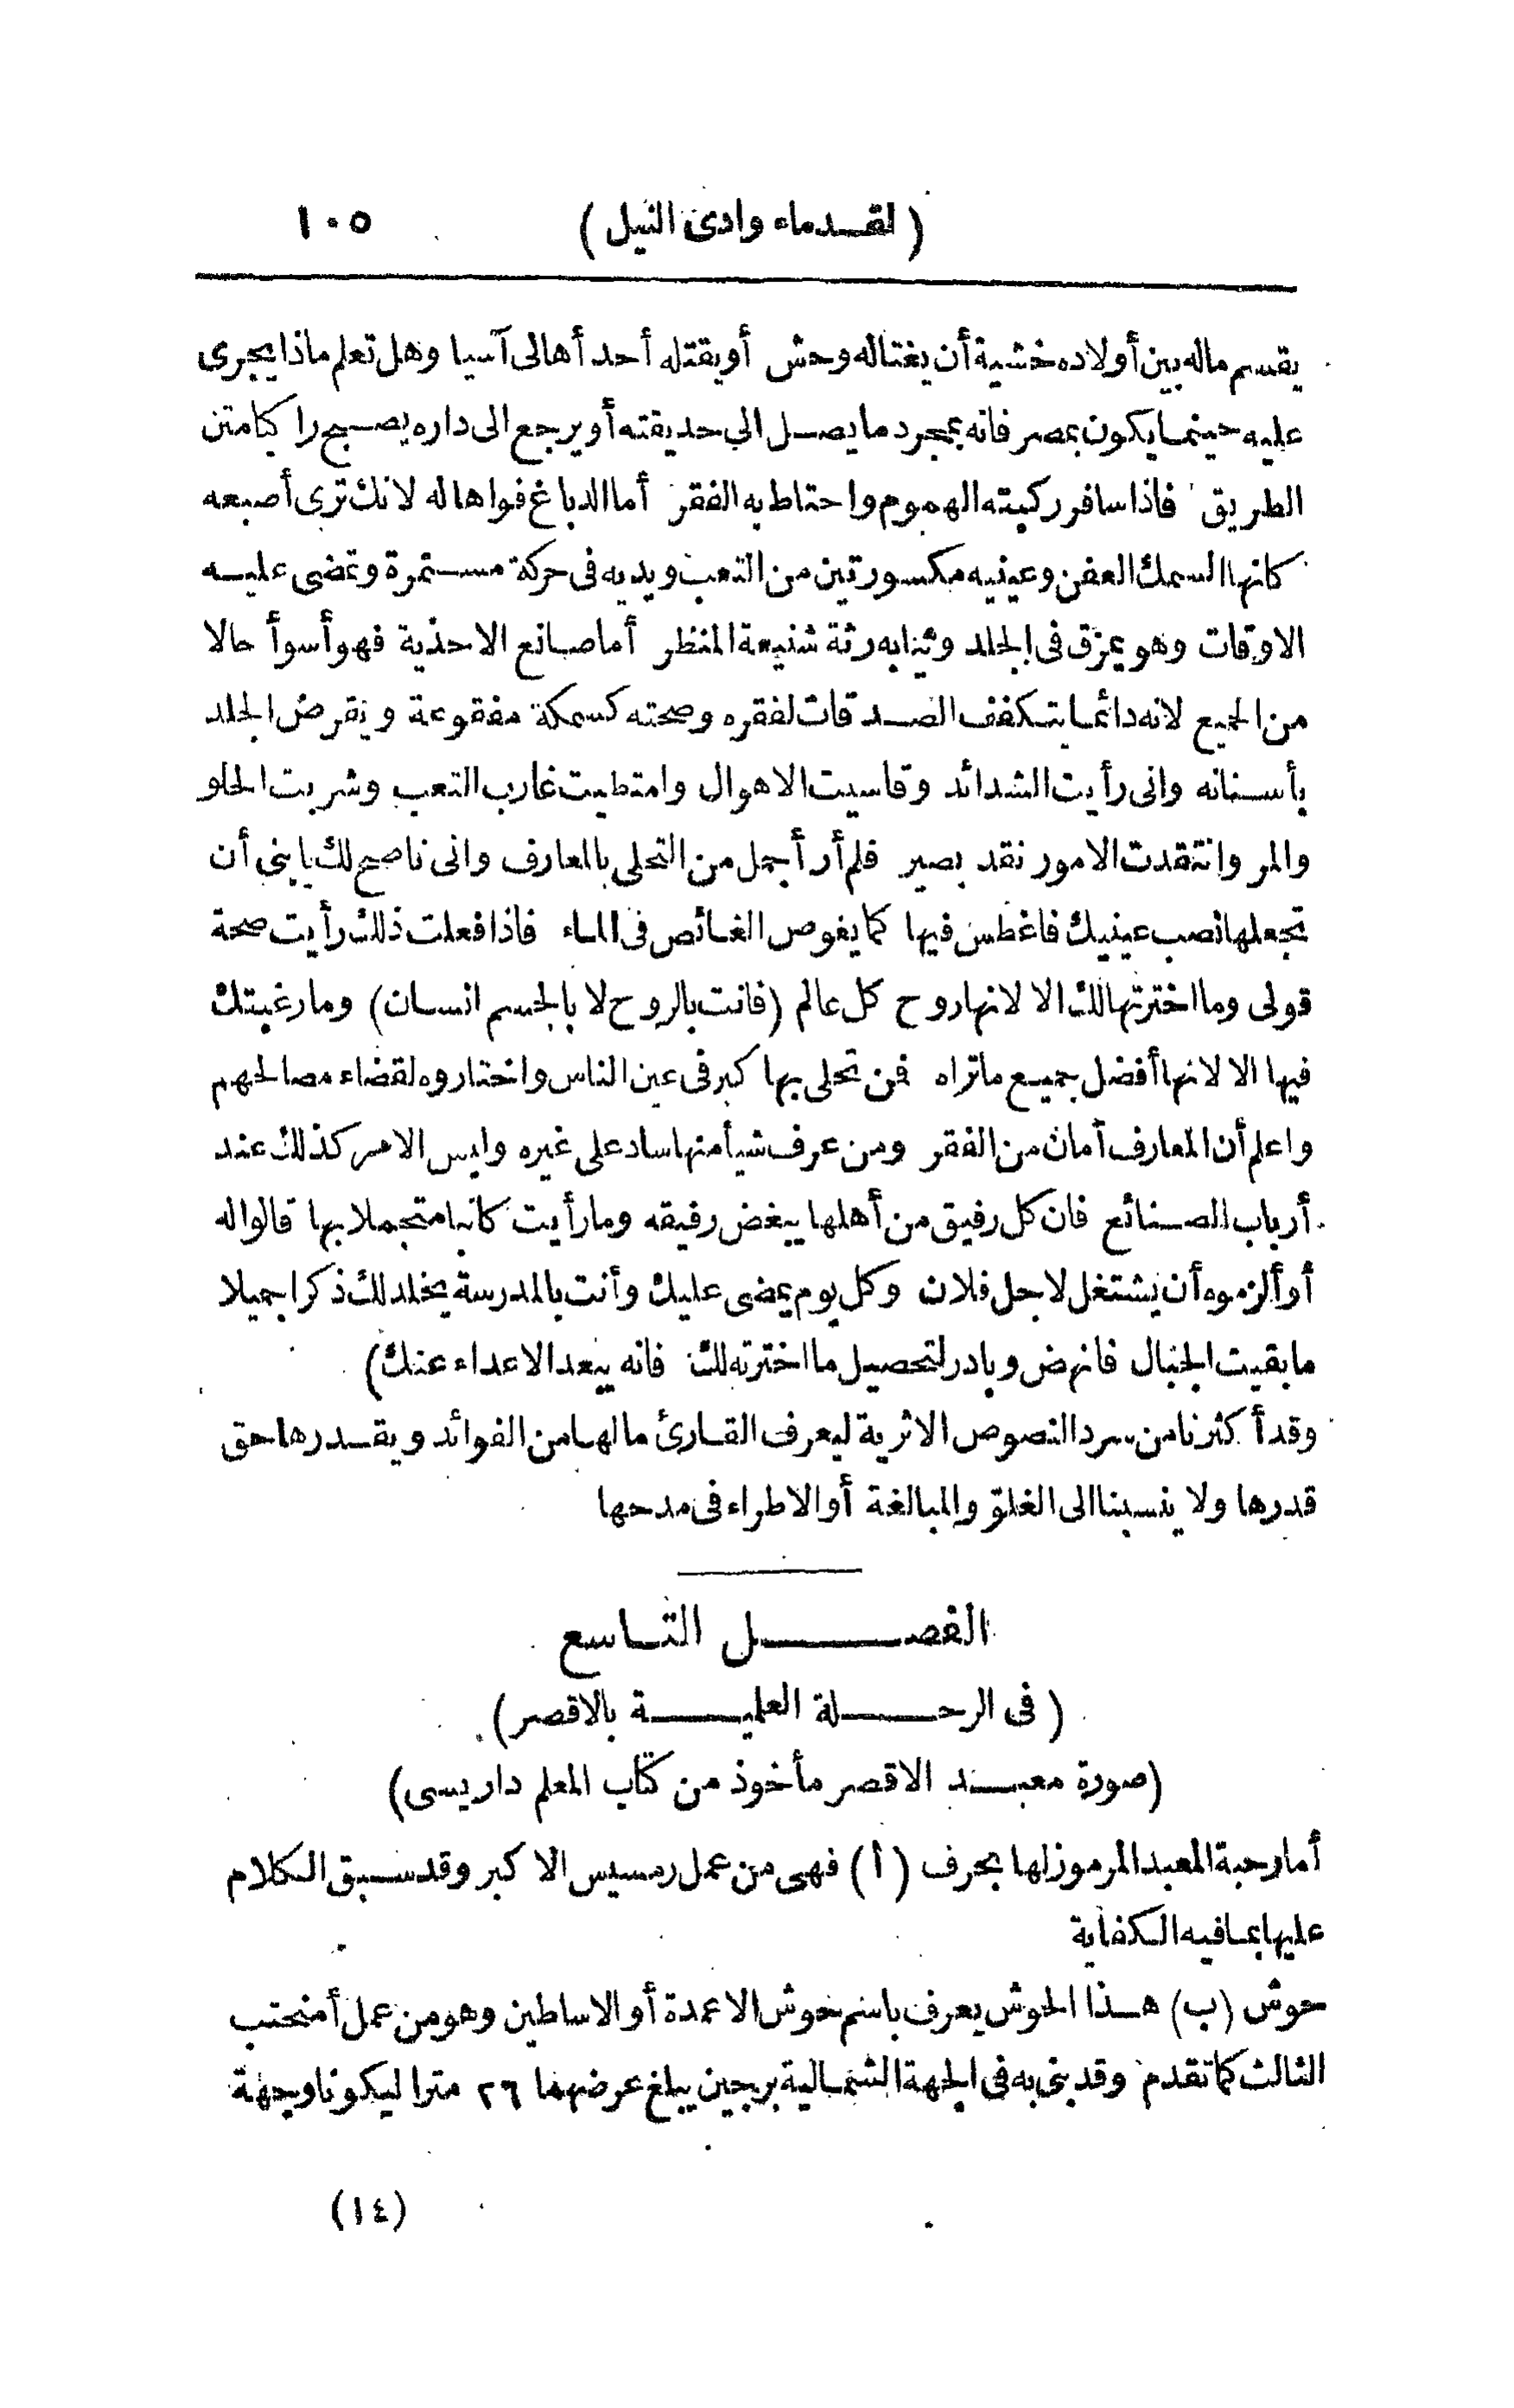 (لقدماء وادى النيل) ١٠٥
يقسم ماله بين أولاده خشية أن يغتاله وحش أو يقتله أحد أهالى آسيا وهل تعلم ماذا يجرى
عليه حينما يكون بمصر فانه بمجرد ما يصل الى حديقته أو يرجع الى داره يصبح راكبا متن
الطريق فاذا سافر ركبته الهموم واحتاط به الفقر أما الدباغ فواها له لانك ترى أصبعه
كانها السمك العفن وعينيه مكسورتين من التعب ويديه فى حركة مستمرة وتمضى عليه
الاوقات وهو يمزق فى الجلد وثيابه رثة شنيعة المنظر أما صانع الاحذية فهو أسوأ حالا
من الجميع لانه دائما يتكفف الصدقات لفقره وصحته كسمكة مفقوعة ويقرض الجلد
بأسنانه وانى رأيت الشدائد وقاسيت الاهوال وامتطيت غارب التعب وشربت الحلو
والمر وانتقدت الامور نقد بصير فلم أر أجمل من التحلى بالمعارف وانى ناصح لك يا بنى أن
تجعلها نصب عينيك فاغطس فيها كما يغوص الغائص فى الماء فاذا فعلت ذلك رأيت صحة
قولى وما اخترتها لك الا لانها روح كل عالم (فانت بالروح لا بالجسم انسان) وما رغبتك
فيها الا لانها أفضل جميع ما تراه فمن تحلى بها كبر فى عين الناس واختاروه لقضاء مصالحهم
واعلم أن المعارف أمان من الفقر ومن عرف شيأ منها ساد على غيره وليس الامر كذلك عند
أرباب الصنائع فان كل رفيق من أهلها يبغض رفيقه وما رأيت كاتبا متجملا بها قالوا له
أو ألزموه أن يشتغل لاجل فلان وكل يوم يمضى عليك وأنت بالمدرسة يخلد لك ذكرا جميلا
ما بقيت الجبال فانهض وبادر لتحصيل ما اخترته لك فانه يبعد الاعداء عنك)
وقد أكثرنا من سرد النصوص الاثرية ليعرف القارئ ما لها من الفوائد ويقدرها حق
قدرها ولا ينسبنا الى الغلوّ والمبالغة أو الاطراء فى مدحها
الفصل التاسع
(فى الرحلة العلمية بالاقصر)
(صورة معبد الاقصر مأخوذ من كتاب المعلم داريسى)
أما رحبة المعبد المرموز لها بحرف (أ) فهى من عمل رمسيس الاكبر وقد سبق الكلام
عليها بما فيه الكفاية
حوش (ب) هذا الحوش يعرف باسم حوش الاعمدة أو الاساطين وهو من عمل أمنحتب
الثالث كما تقدم وقد بنى به فى الجهة الشمالية برجين يبلغ عرضهما ٢٦ مترا ليكونا وجهة
(١٤)